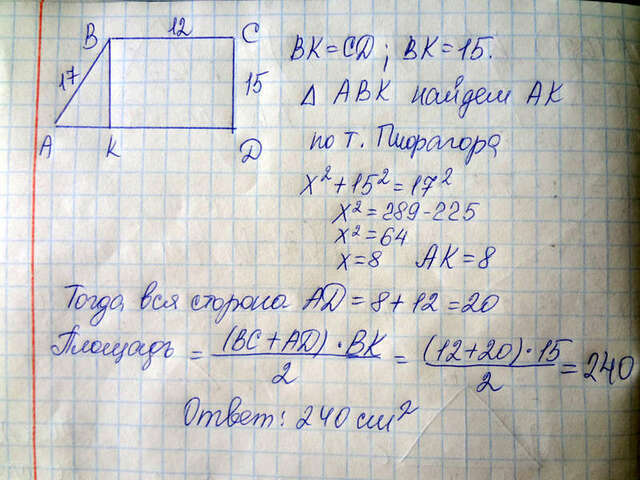 B 12 C
17
15
A K D
BK = CD; BK = 15.
Δ ABK найдем AK
по т. Пифагора
x² + 15² = 17²
x² = 289 - 225
x² = 64
x = 8 AK = 8
Тогда вся сторона AD = 8 + 12 = 20
Площадь = (BC + AD) · BK / 2 = (12 + 20) · 15 / 2 = 240
Ответ: 240 см²